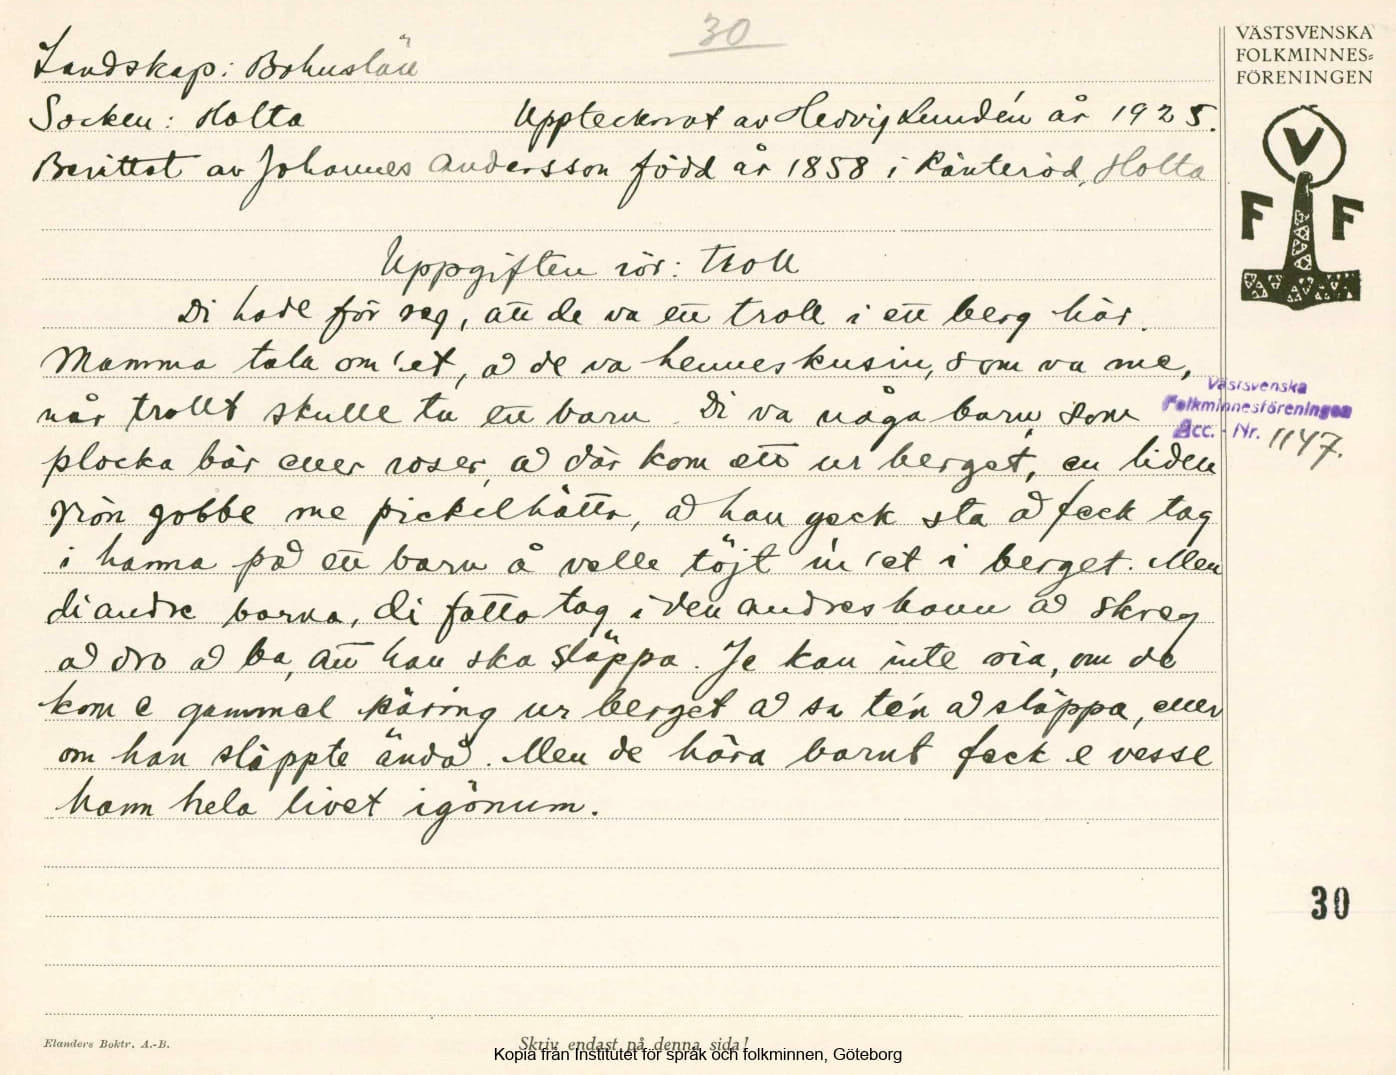 30
Landskap: Bohuslän
Socken: Holta Upptecknat av Hedvig Lundén år 1925.
Berättat av Johannes Andersson född år 1858 i Ränteröd, Holta
Uppgiften rör: Troll
Di hade för seg, att de va ett troll i ett berg här.
Mamma tala om 'et, å de va hennes kusin, som va me,
når trollt skulle ta ett barn. Di va någa barn, som
plocka bär eller roser, å där kom ett ur berget, en liden
grön gobbe me pickelhätta, å han geck sta å feck tag
i hanna på ett barn å velle töjt in 'et i berget. Men
di andre barna, di fatta tag i den andres hann å skreg
å dro å ba, att han ska släppa. Je kan inte sia, om de
kom e gammel käring ur berget å sa te'n å släppa, eller
om han släppte ändå. Men de hära barnt feck e vesse
hann hela livet igönum.
VÄSTSVENSKA
FOLKMINNES=
FÖRENINGEN
V
F F
Västsvenska
Folkminnesföreningen
Acc. - Nr. 1147.
30
Elanders Boktr. A.-B.
Skriv endast på denna sida!
Kopia från Institutet för språk och folkminnen, Göteborg